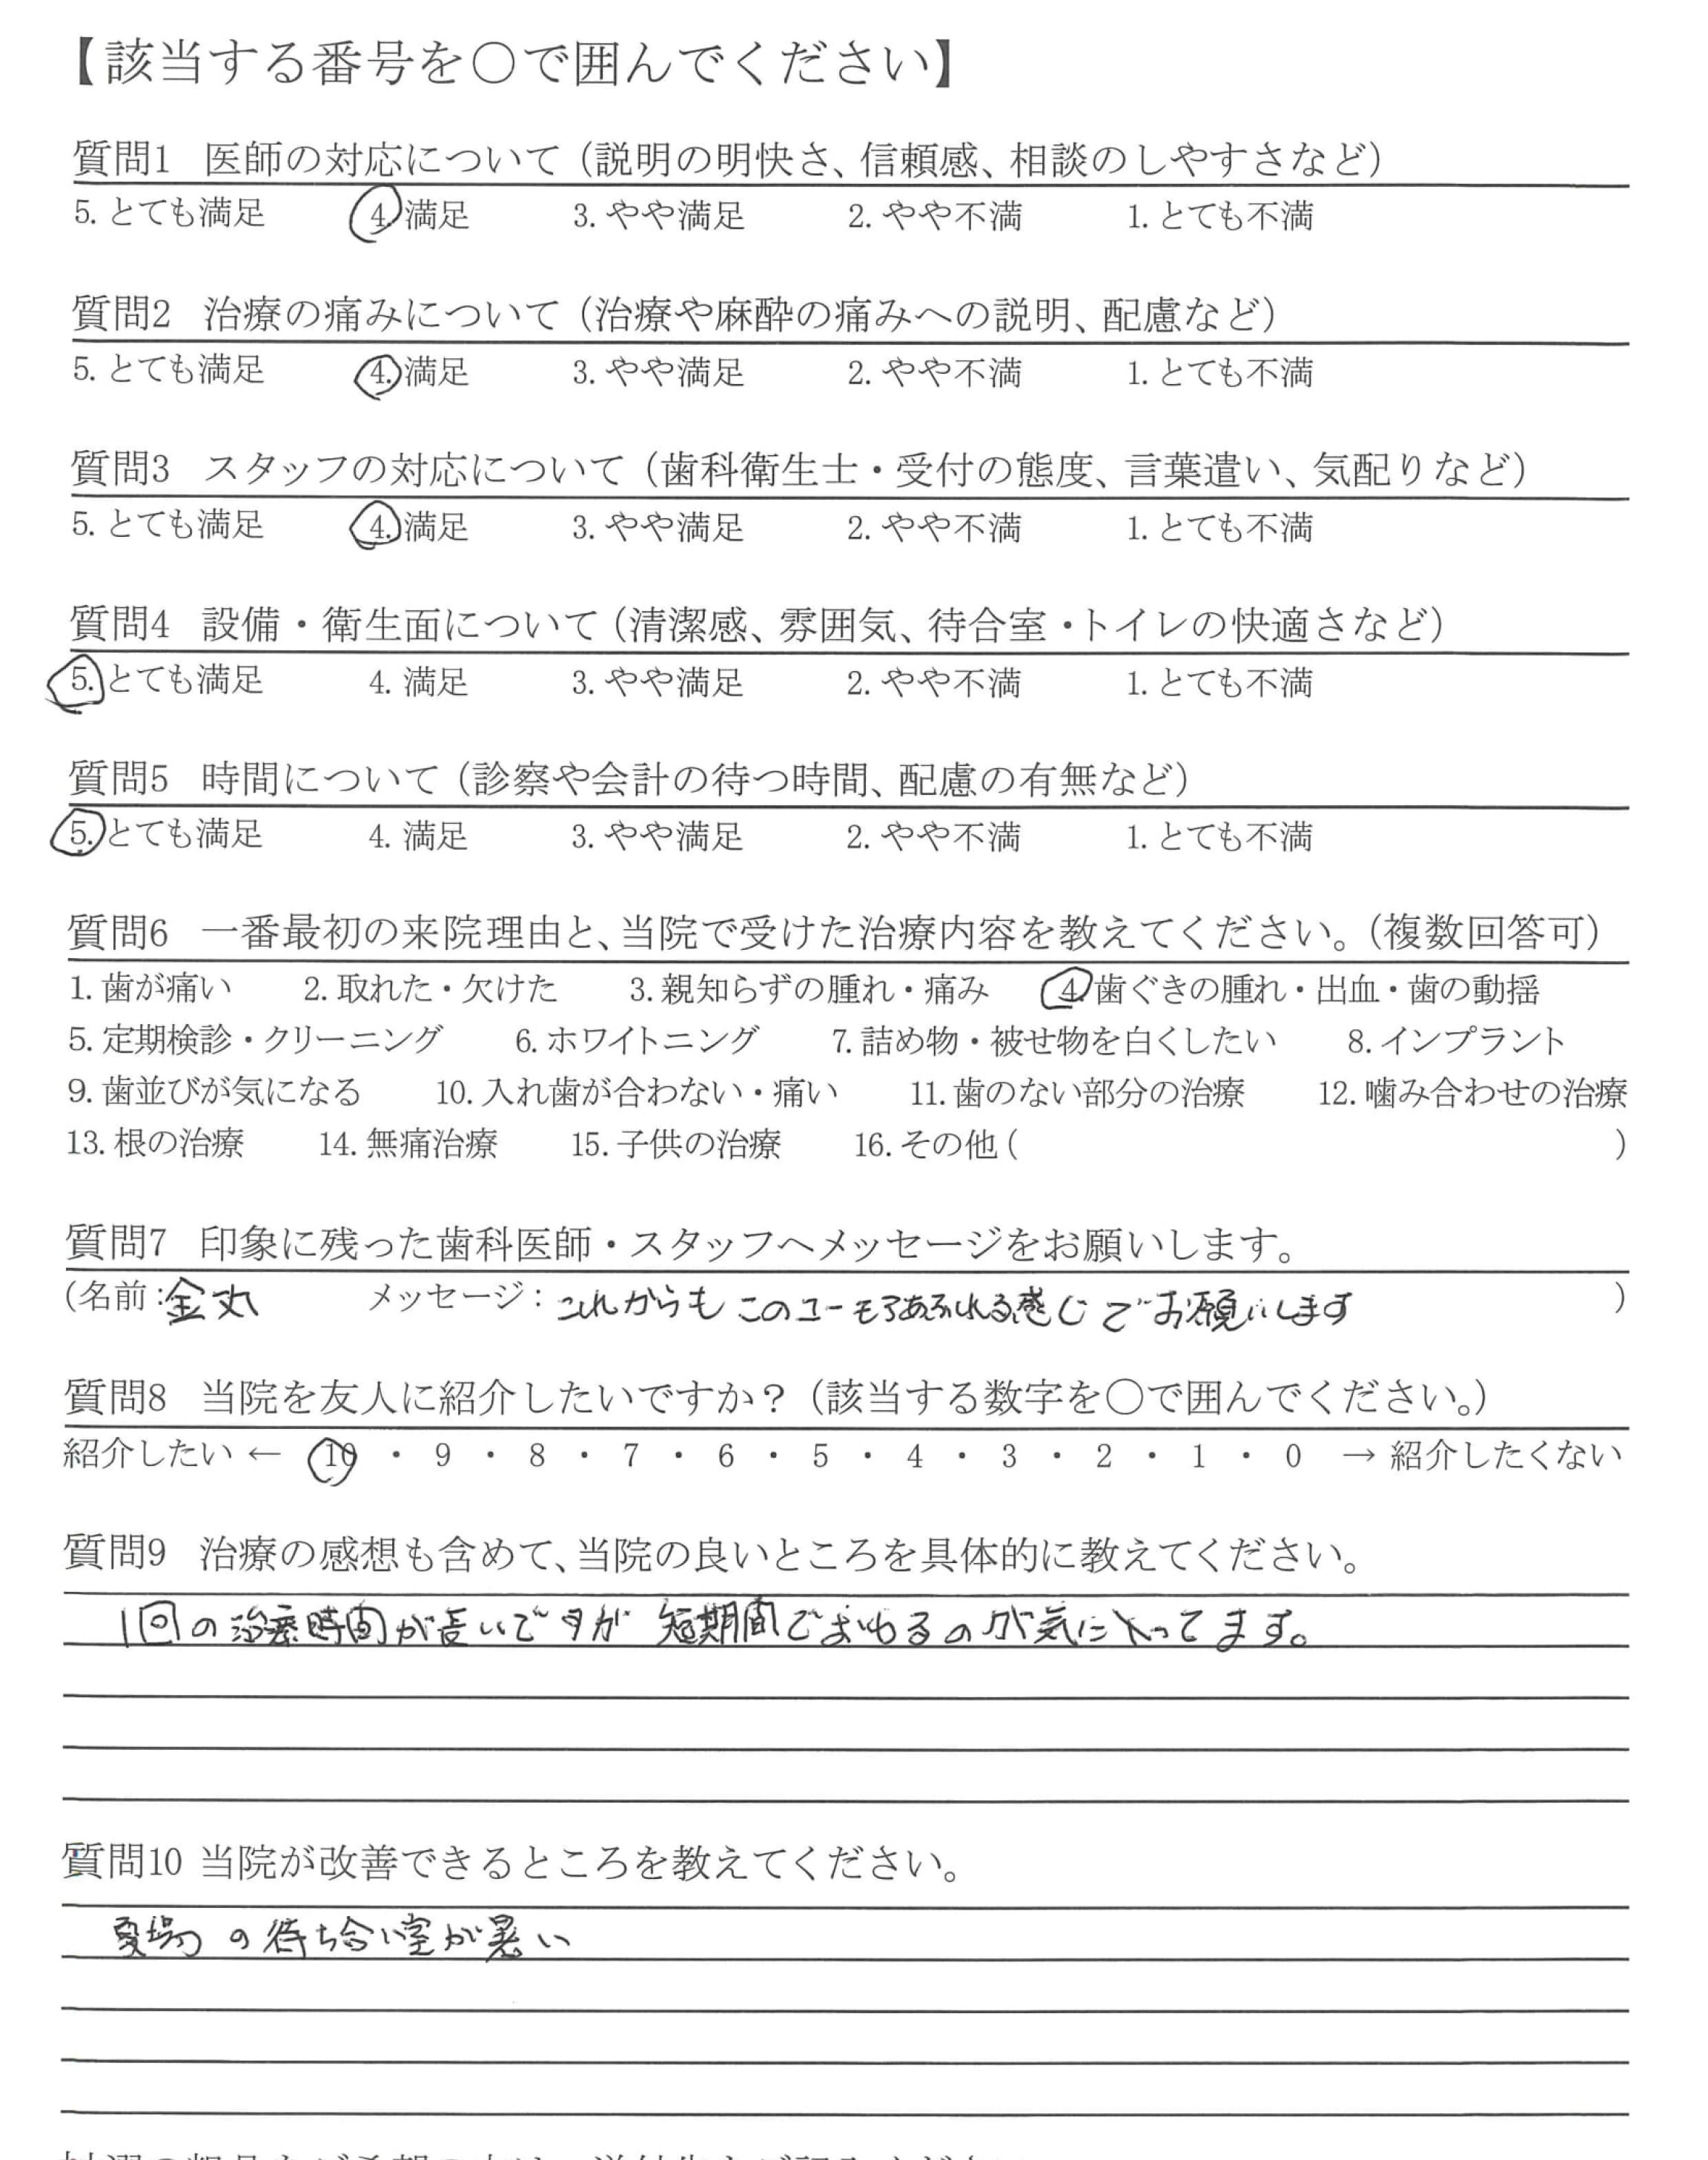 【該当する番号を○で囲んでください】
質問1 医師の対応について（説明の明快さ、信頼感、相談のしやすさなど）
5. とても満足 4. 満足 3. やや満足 2. やや不満 1. とても不満
質問2 治療の痛みについて（治療や麻酔の痛みへの説明、配慮など）
5. とても満足 4. 満足 3. やや満足 2. やや不満 1. とても不満
質問3 スタッフの対応について（歯科衛生士・受付の態度、言葉遣い、気配りなど）
5. とても満足 4. 満足 3. やや満足 2. やや不満 1. とても不満
質問4 設備・衛生面について（清潔感、雰囲気、待合室・トイレの快適さなど）
5. とても満足 4. 満足 3. やや満足 2. やや不満 1. とても不満
質問5 時間について（診察や会計の待つ時間、配慮の有無など）
5. とても満足 4. 満足 3. やや満足 2. やや不満 1. とても不満
質問6 一番最初の来院理由と、当院で受けた治療内容を教えてください。（複数回答可）
1. 歯が痛い 2. 取れた・欠けた 3. 親知らずの腫れ・痛み 4. 歯ぐきの腫れ・出血・歯の動揺
5. 定期検診・クリーニング 6. ホワイトニング 7. 詰め物・被せ物を白くしたい 8. インプラント
9. 歯並びが気になる 10. 入れ歯が合わない・痛い 11. 歯のない部分の治療 12. 噛み合わせの治療
13. 根の治療 14. 無痛治療 15. 子供の治療 16. その他（ ）
質問7 印象に残った歯科医師・スタッフへメッセージをお願いします。
（名前：金丸 メッセージ：これからもこのユーモアあふれる感じでお願いします ）
質問8 当院を友人に紹介したいですか？（該当する数字を○で囲んでください。）
紹介したい ← 10 ・ 9 ・ 8 ・ 7 ・ 6 ・ 5 ・ 4 ・ 3 ・ 2 ・ 1 ・ 0 → 紹介したくない
質問9 治療の感想も含めて、当院の良いところを具体的に教えてください。
1回の治療時間が長いですが 短期間でおわるのが気に入ってます。
質問10 当院が改善できるところを教えてください。
夏場の待ち合い室が暑い